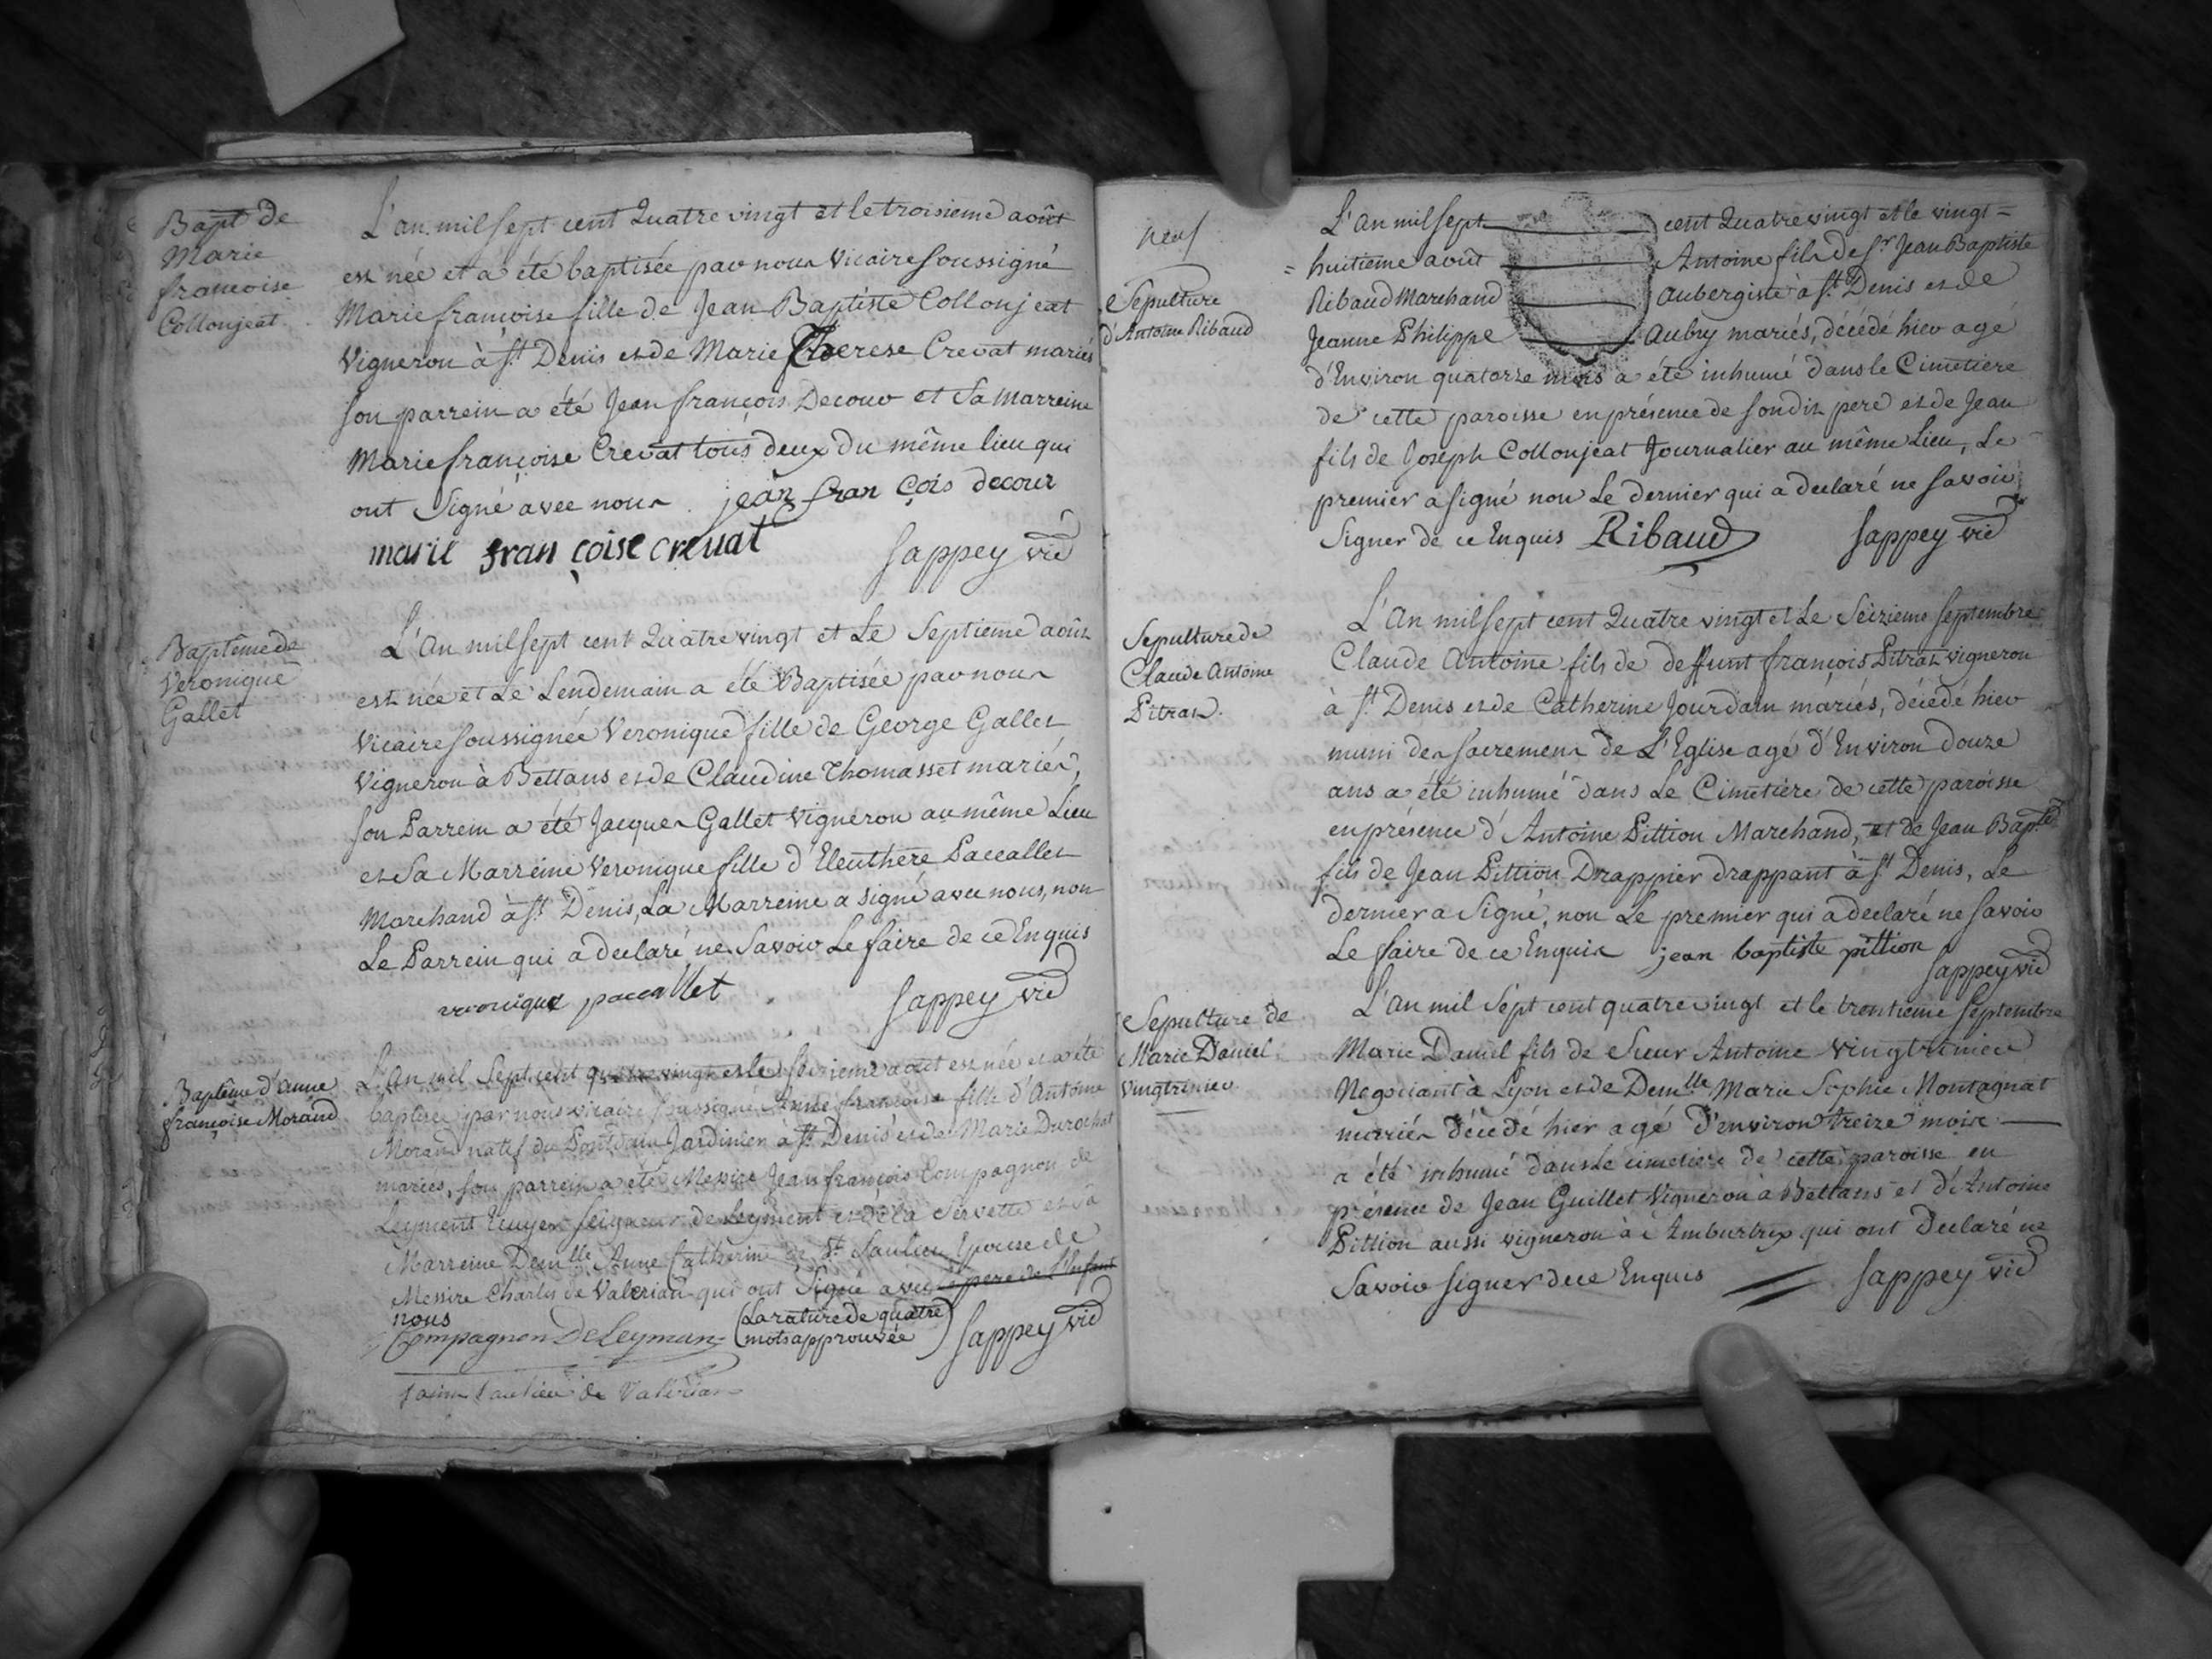 Bapt de
Marie
francoise
Collonjeat
L'an mil sept cent Quatre vingt et le troisieme août
est née et a été baptisée par nous Vicaire soussigné
Marie françoise fille de Jean Baptiste Collonjeat
Vigneron à St Denis et de Marie Therese Crevat mariés
son parrein a été Jean françois Decour et Sa Marreine
Marie françoise Crevat tous deux du même lieu qui
ont Signé avec nous. jean fran çois decour
marie fran çoise creuat sappey vic
Baptême de
Veronique
Gallet
L'An mil sept cent Quatre vingt et Le Septieme août
est née et Le Lendemain a été Baptisée par nous
Vicaire soussignée Veronique fille de George Gallet
Vigneron à Bettans et de Claudine Thomasset mariés,
son Parrein a été Jacques Gallet Vigneron au même Lieu
et Sa Marreine Veronique fille d'Eleuthere Paccallet
Marchand à St Denis, La Marreine a signé avec nous, non
Le Parrein qui a declaré ne Savoir Le faire de ce Enquis
veronique paccallet sappey vic
Baptême d'anne
françoise Morand
L'an mil Sept cent quatre vingt et le seizieme août est née et a été
baptisée par nous vicaire soussigné Anne francoise fille d'Antoine
Morand natif du Pontdain Jardinier à St Denis et de Marie Durochat
mariés, son parrein a été Messire Jean françois Compagnon de
Leyment Ecuyer seigneur de Leyment et de la Servette et Sa
Marreine Demlle Anne Catherine de St Saulieu Epouse de
Messire Charles de Valerian qui ont Signé avec le pere de L'Enfant
nous (La rature de quatre
mots approuvée) sappey vic
Compagnon DeLeyman
saint saulieu de Valerian
neuf
Sepulture
d'Antoine Ribaud
L'An mil sept cent Quatre vingt et le vingt=
=huitieme août Antoine fils de Sr Jean Baptiste
Ribaud Marchand Aubergiste à St Denis et de
Jeanne Philippe Aubry mariés, décédé hier agé
d'Environ quatorze mois a été inhumé dans le Cimetiere
de cette paroisse en présence de son dit pere et de Jean
fils de Joseph Collonjeat Journalier au même Lieu, Le
premier a signé non Le dernier qui a declaré ne savoir
Signer de ce Enquis Ribaud sappey vic
Sepulture de
Claude Antoine
Pitrat.
L'An mil sept cent Quatre vingt et Le Seizieme Septembre
Claude Antoine fils de deffunt françois Pitrat vigneron
à St Denis et de Catherine Jourdain mariés, décédé hier
muni des sacremens de L'Eglise agé d'Environ douze
ans a été inhumé dans Le Cimetière de cette paroisse
en présence d'Antoine Pittion Marchand, et de Jean Bapte
fils de Jean Pittion Drappier drappant à St Denis, Le
dernier a Signé, non Le premier qui a declaré ne savoir
Le faire de ce Enquis jean baptiste pittion
sappey vic
Sepulture de
Marie Daniel
Vingtrinier
L'an mil Sept cent quatre vingt et le trentieme Septembre
Marie Daniel fils de Sieur Antoine Vingtrinier
Negociant à Lyon et de Demlle Marie Sophie Montagnat
mariés décédé hier agé d'environ treize mois
a été inhumé dans Le cimetiere de cette paroisse en
présence de Jean Guillet Vigneron à Bettans et d'Antoine
Pittion aussi vigneron à Ambutrix qui ont declaré ne
Savoir signer de ce Enquis sappey vic